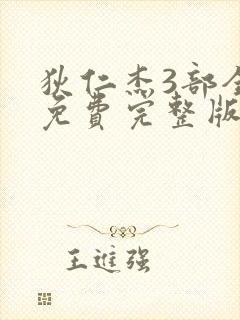 狄仁杰3部全
免费完整版
王进强